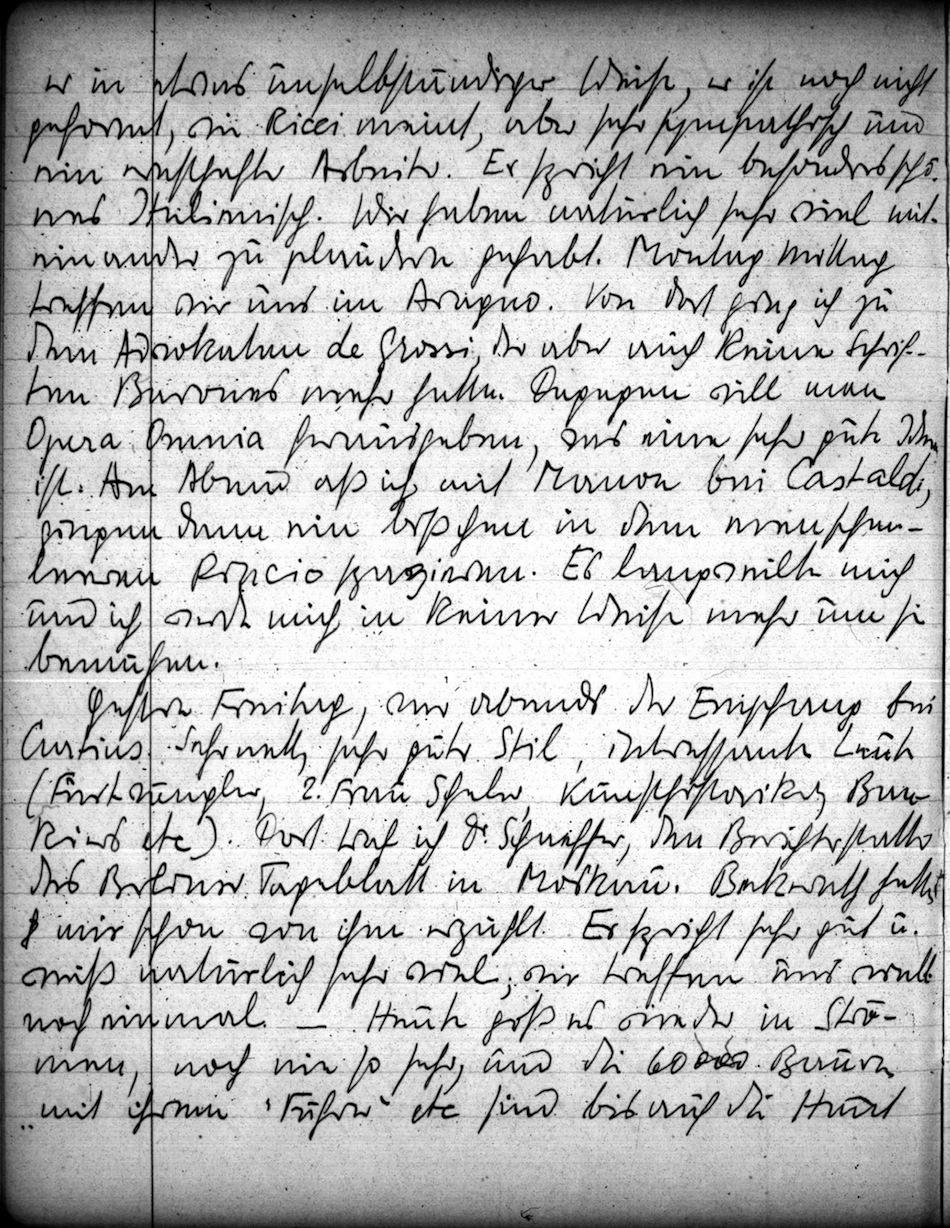 er in etwas unselbständiger Weise, er ist noch nicht
geformt, wie Ricci meint, aber sehr sympathisch und
ein ernsthafter Arbeiter. Er spricht ein besonders schö-
nes Italienisch. Wir haben natürlich sehr viel mit-
einander zu plaudern gehabt. Montag Mittag
treffen wir uns im Aragno. Von dort ging ich zu
dem Advokaten de Grossi, der aber auch keine Schrif-
ten Barones mehr hatte. Dagegen will man
Opera Omnia herausgeben, was eine sehr gute Idee
ist. Am Abend aß ich mit Manon bei Castaldi,
gingen dann ein bißchen in dem menschen-
leeren Pincio spazieren. Es langweilte mich
und ich werde mich in keiner Weise mehr um sie
bemühen.
Gestern Freitag, war abends der Empfang bei
Curtius. Sehr nett, sehr guter Stil, interessante Leute
(Furtwängler, 2. Frau Scheler, Kunsthistoriker, Ban-
kiers etc). Dort traf ich Dr Scheffer, den Berichterstatter
des Berliner Tageblatt in Moskau. Beckerath hatte
mir schon von ihm erzählt. Er spricht sehr gut u.
weiß natürlich sehr viel, wir treffen uns wohl
noch einmal. — Heute goß es wieder in Strö-
men, noch nie so sehr, und die 60000 Bauern
mit ihrem "Führer" etc sind bis auf die Haut